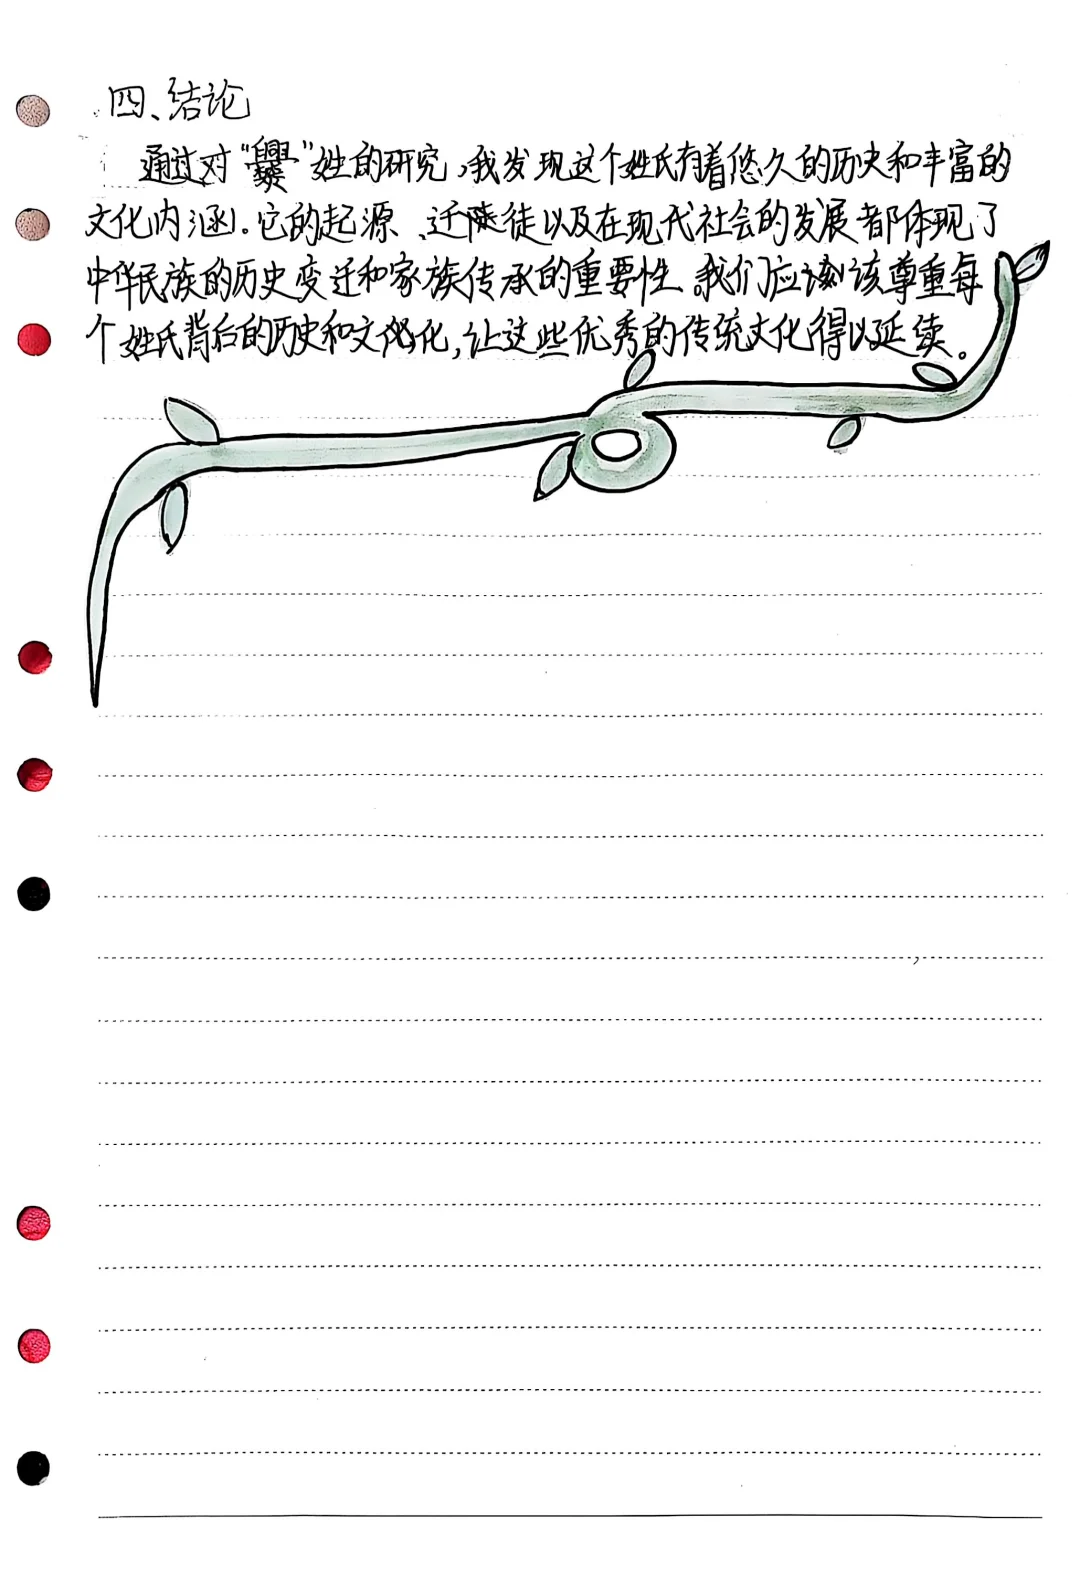 四、结论
通过对“爨”姓的研究,我发现这个姓氏有着悠久的历史和丰富的
文化内涵。它的起源、迁徙以及在现代社会的发展都体现了
中华民族的历史变迁和家族传承的重要性。我们应该尊重每
个姓氏背后的历史和文化,让这些优秀的传统文化得以延续。